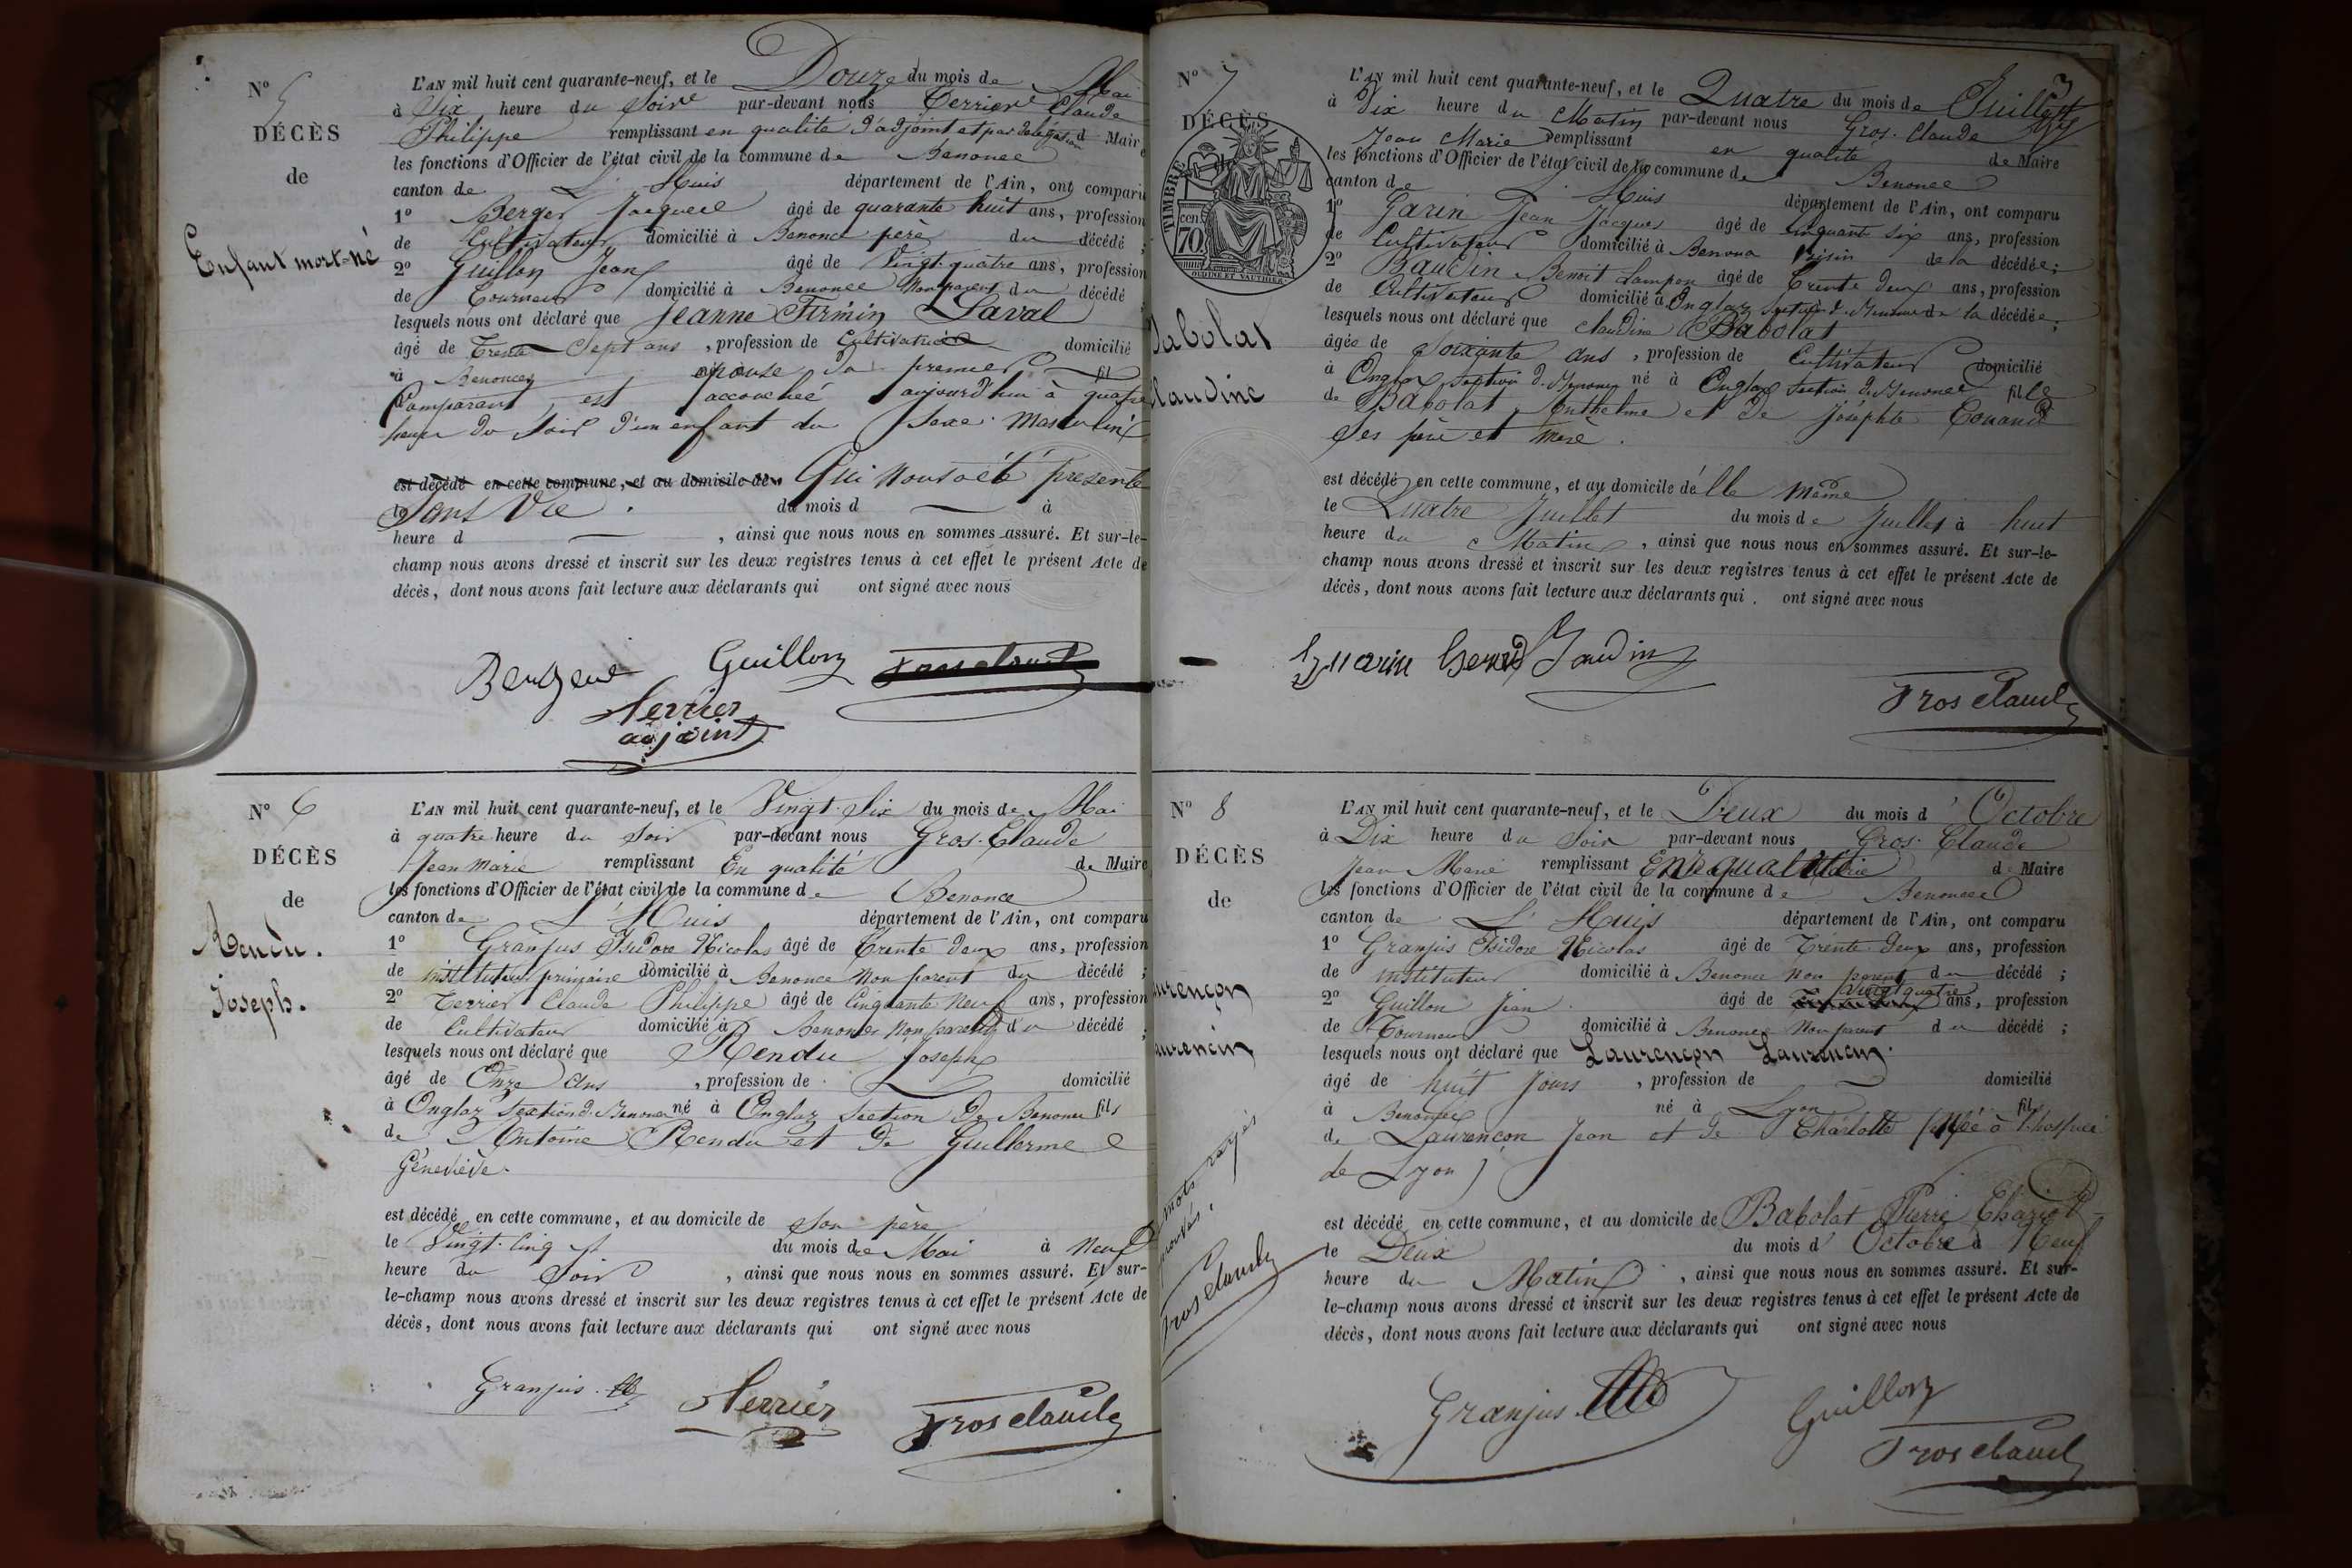 N° 5
DÉCÈS
de
Enfant mort-né
L'AN mil huit cent quarante-neuf, et le Douze du mois de Mai
à Six heure du Soir par-devant nous Terrier Claude
Philippe remplissant en qualité d'adjoint et par délégation d Maire
les fonctions d'Officier de l'état civil de la commune de Benonce
canton de L'Huis département de l'Ain, ont comparu
1° Berger Jacques âgé de quarante huit ans, profession
de Cultivateur domicilié à Benonce père du décédé ;
2° Guillon Jean âgé de Vingt-quatre ans, profession
de Tourneur domicilié à Benonce Non parent du décédé ;
lesquels nous ont déclaré que Jeanne Firmin Laval
âgé de Trente Sept ans, profession de Cultivatrice domicilié
à Benonces épouse du premier fil
Comparant, est accouchée aujourd'hui à quatre
heure du Soir d'un enfant du Sexe Masculin
est décédé en cette commune, et au domicile de Qui Nous a été présenté
le Sans Vie . du mois d à
heure d , ainsi que nous nous en sommes assuré. Et sur-le-
champ nous avons dressé et inscrit sur les deux registres tenus à cet effet le présent Acte de
décès, dont nous avons fait lecture aux déclarants qui ont signé avec nous
Guillon
Terrier
adjoint
N° 6
DÉCÈS
de
Rendu.
Joseph.
L'AN mil huit cent quarante-neuf, et le Vingt-Six du mois de Mai
à quatre heure du Soir par-devant nous Gros-Claude
Jean Marie remplissant En qualité de Maire
les fonctions d'Officier de l'état civil de la commune de Benonce
canton de L'Huis département de l'Ain, ont comparu
1° Granjus Isidore Nicolas âgé de Trente deux ans, profession
de instituteur primaire domicilié à Benonce Non parent du décédé ;
2° Terrier Claude Philippe âgé de Cinquante Neuf ans, profession
de Cultivateur domicilié à Benonces Non parent du décédé ;
lesquels nous ont déclaré que Rendu Joseph
âgé de Onze ans , profession de domicilié
à Onglaz Section d. Benonce né à Onglaz Section De Benonce fils
de Antoine Rendu et De Guillerme
Géneviève
est décédé en cette commune, et au domicile de Son père
le Vingt-Cinq du mois de Mai à Neuf
heure du Soir , ainsi que nous nous en sommes assuré. Et sur-
le-champ nous avons dressé et inscrit sur les deux registres tenus à cet effet le présent Acte de
décès, dont nous avons fait lecture aux déclarants qui ont signé avec nous
Granjus
Terrier
Grosclaude
3
N° 7
DÉCÈS
TIMBRE
70 cen
OUDINÉ ET VAUTHIER
Babolat
Claudine
L'AN mil huit cent quarante-neuf, et le Quatre du mois de Juillet
à Dix heure du Matin par-devant nous Gros-Claude
Jean Marie remplissant en qualité de Maire
les fonctions d'Officier de l'état civil de la commune de Benonce
canton de L'Huis département de l'Ain, ont comparu
1° Garin Jean Jacques âgé de Cinquante six ans, profession
de Cultivateur domicilié à Benonce Voisin de la décédée ;
2° Baudin Benoit âgé de Trente deux ans, profession
de Cultivateur domicilié à Onglaz Section d. Benonce de la décédée ;
lesquels nous ont déclaré que Claudine Babolat
âgée de Soixante ans , profession de Cultivateur domicilié
à Onglaz Section d. Benonce né à Onglaz Section de Benonce fille
de Babolat Anthelme et De Joséphte
Ses père et mère.
est décédé en cette commune, et au domicile d'elle même
le Quatre Juillet du mois de Juillet à huit
heure du Matin , ainsi que nous nous en sommes assuré. Et sur-le-
champ nous avons dressé et inscrit sur les deux registres tenus à cet effet le présent Acte de
décès, dont nous avons fait lecture aux déclarants qui . ont signé avec nous
Grosclaude
N° 8
DÉCÈS
de
Laurençon
Laurencin
mots rayés
Grosclaude
L'AN mil huit cent quarante-neuf, et le Deux du mois d'Octobre
à Dix heure du Soir par-devant nous Gros-Claude
Jean Marie remplissant En qualité de Maire
les fonctions d'Officier de l'état civil de la commune de Benonce
canton de L'Huis département de l'Ain, ont comparu
1° Granjus Isidore Nicolas âgé de Trente deux ans, profession
de instituteur domicilié à Benonce Non parent du décédé ;
2° Guillon Jean âgé de Vingt quatre ans, profession
de Tourneur domicilié à Benonce Non parent du décédé ;
lesquels nous ont déclaré que Laurençon Laurencin.
âgé de huit Jours , profession de domicilié
à Benonce né à Lyon fils
de Laurencon Jean et de Charlotte à l'hospice
de Lyon
est décédé en cette commune, et au domicile de Babolat Pierre
le Deux du mois d'Octobre à Neuf
heure du Matin , ainsi que nous nous en sommes assuré. Et sur-
le-champ nous avons dressé et inscrit sur les deux registres tenus à cet effet le présent Acte de
décès, dont nous avons fait lecture aux déclarants qui ont signé avec nous
Granjus
Guillon
Grosclaude